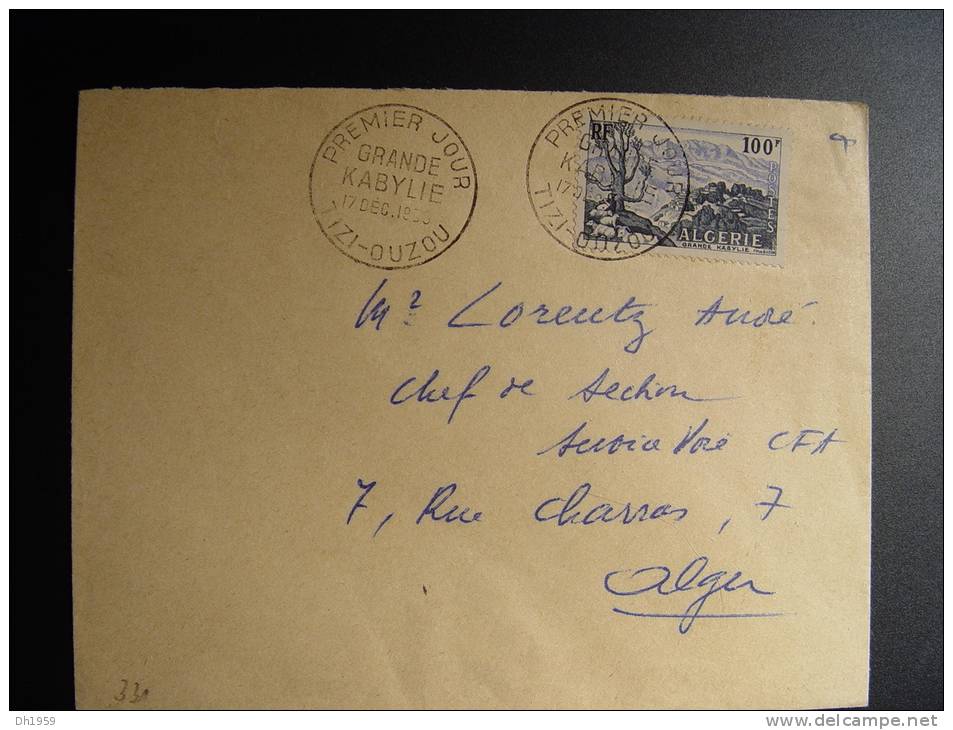 PREMIER JOUR
GRANDE
KABYLIE
17 DEC. 1955
TIZI-OUZOU
PREMIER JOUR
GRANDE
KABYLIE
TIZI-OUZOU
RF
100F
POSTES
ALGERIE
GRANDE KABYLIE
Mr Lorentz André
Chef de Section
Service Voie CFA
7, Rue Charras, 7
Alger
331
Dh1959
www.delcampe.net